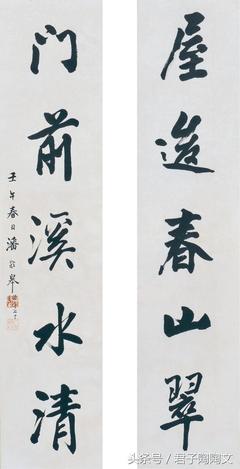 屋邊春山翠
门前溪水清
壬午春日潘龄皋
头条号 / 君子陶陶文